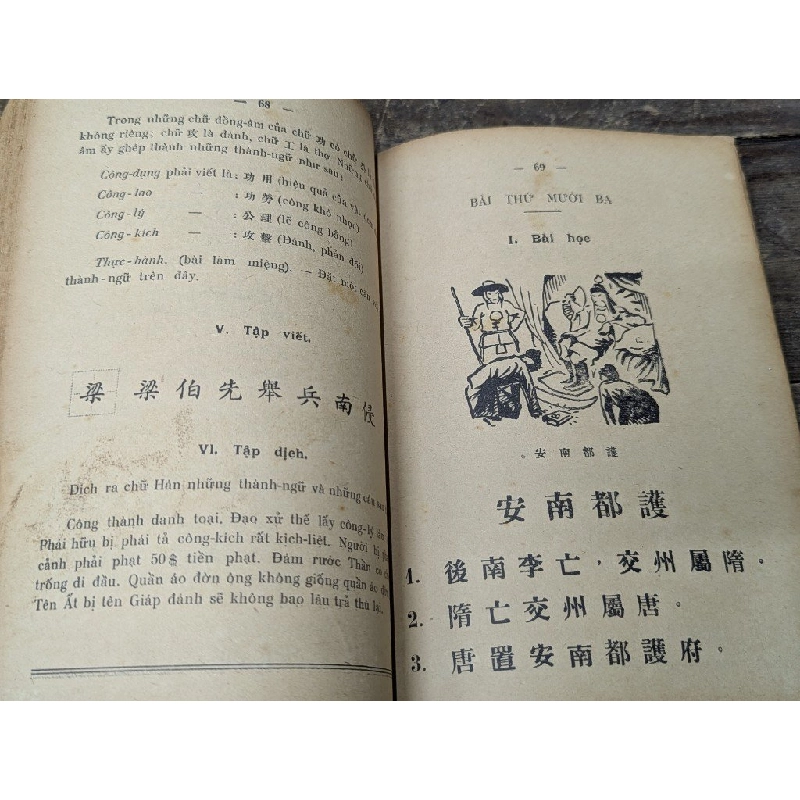 — 68 —
Trong những chữ đồng-âm của chữ 功 có chữ
không riêng; chữ 攻 là đánh, chữ 工 là thợ
âm ấy ghép thành những thành-ngữ như sau:
Công-dụng phải viết là: 功用 (hiệu quả của
Công-lao 功勞 (công khó nhọc)
Công-lý — 公理 (lẽ công bằng)
Công-kích — 攻擊 (Đánh, phản đối)
Thực-hành. (bài làm miệng). — Đặt
thành-ngữ trên đây.
V. Tập viết.
梁 梁伯先舉兵南侵
VI. Tập dịch.
Dịch ra chữ Hán những thành-ngữ và những
Công thành danh toại. Đạo xử thế lấy công-lý
Phái hữu bị phái tả công-kích rất kịch-liệt. Người bị
cảnh phải phạt 50$ tiền phạt. Đám rước Thần
trống đi đầu. Quần áo đờn ông không giống quần áo
Tên Ất bị tên Giáp đánh sẽ không bao lâu trả thù
— 69 —
BÀI THỨ MƯỜI BA
I. Bài học
安南都護
安南都護
1. 後南李亡,交州屬隋。
2. 隋亡交州屬唐。
3. 唐置安南都護府。